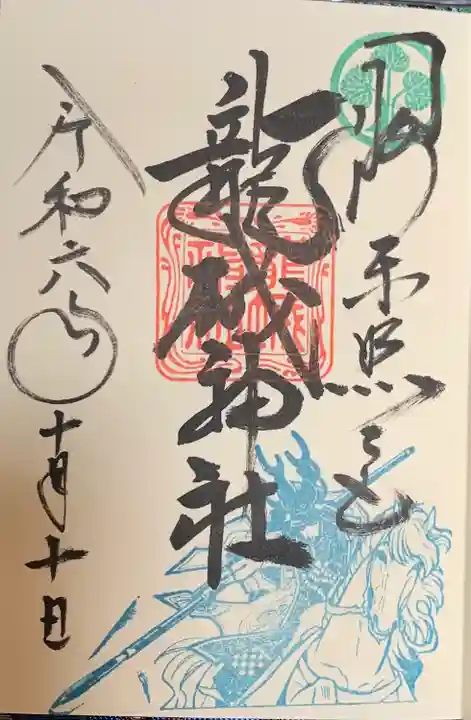 岡崎東照宮
龍城神社
令和六年十月十日